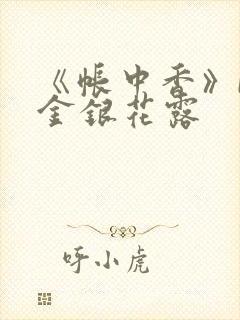 《帳中香》
金銀花露
呼小虎